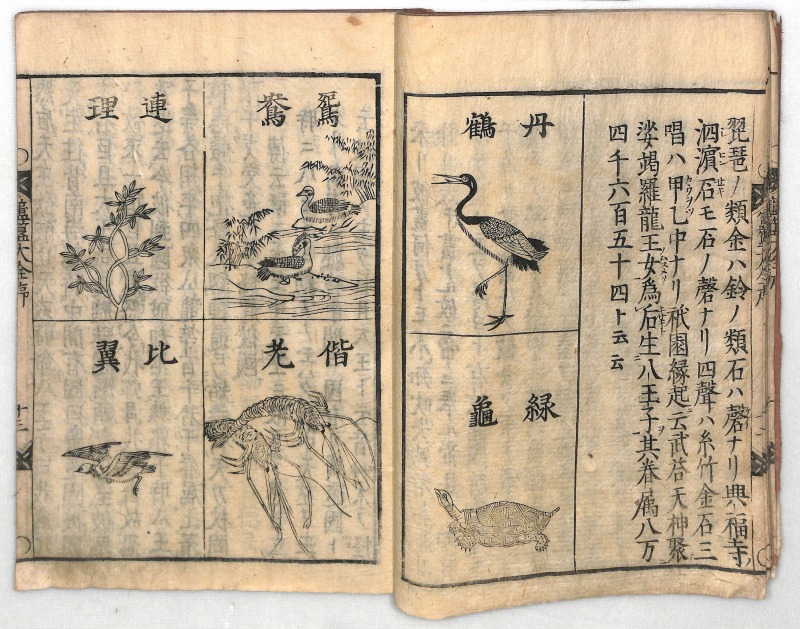 琵琶ノ類金ハ鈴ノ類石ハ磬ナリ興福寺ノ
泗濵石モ石ノ磬ナリ四聲ハ糸竹金石三
唱ハ甲乙中ナリ祇園縁起ニ云武荅天神聚
娑竭羅龍王女爲后生八王子其眷属八万
四千六百五十四ト云云
丹鶴
緑龜
鴛鴦
偕老
連理
比翼
十三